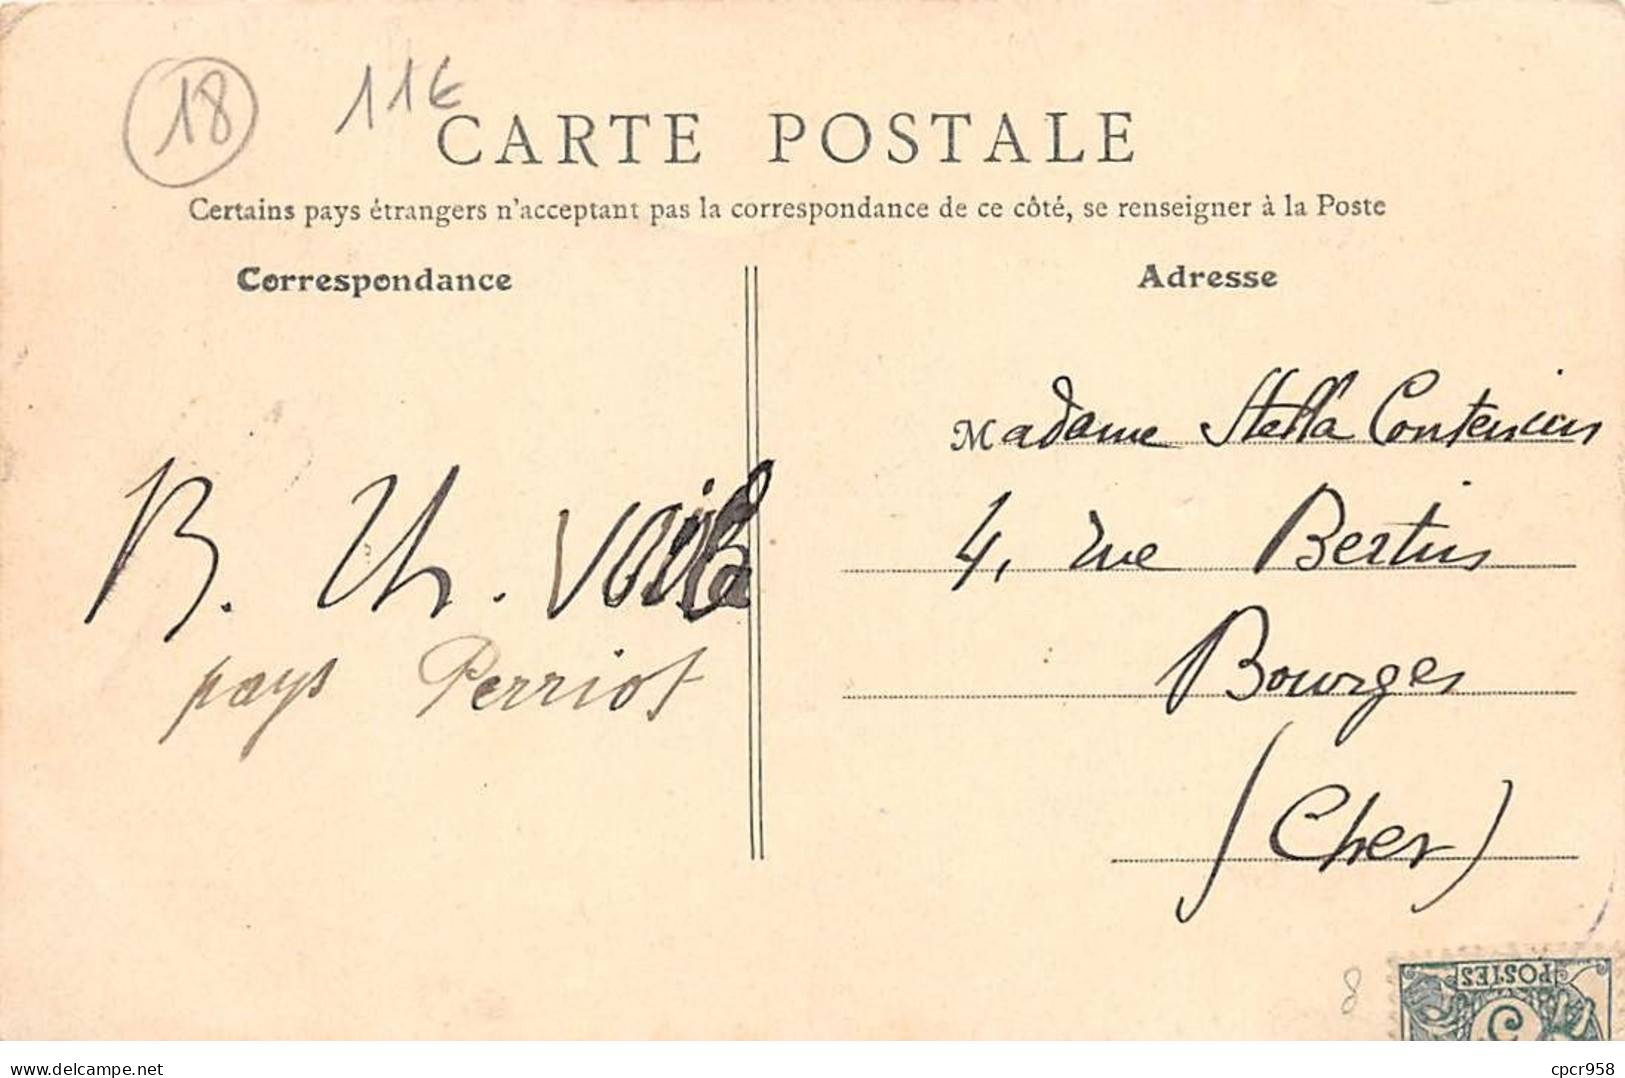 18
11€
CARTE POSTALE
Certains pays étrangers n'acceptant pas la correspondance de ce côté, se renseigner à la Poste
Correspondance
Adresse
Madame Stella
4, rue Bertin
Bourges
(Cher)
B. Th. voilà
pays Perriot
8
POSTES
5
www.delcampe.net
cpcr958